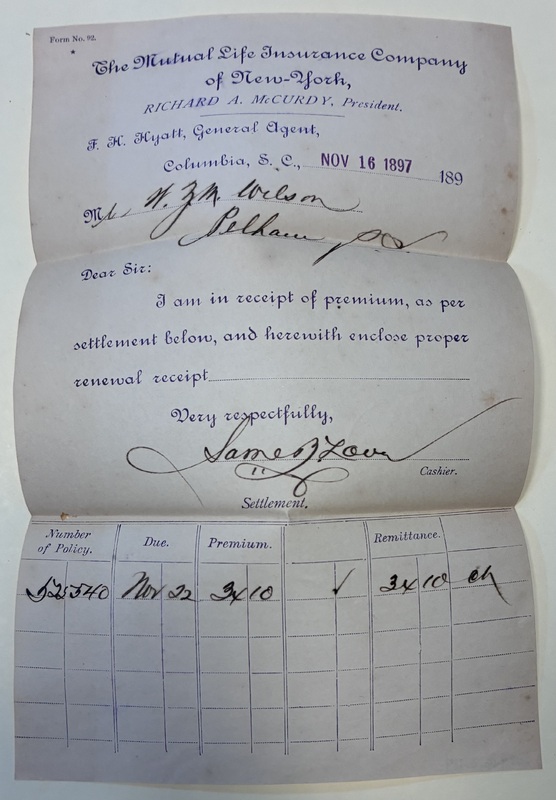 Form No. 92.
The Mutual Life Insurance Company
of New-York,
RICHARD A. McCURDY, President.
F. H. Hyatt, General Agent,
Columbia, S. C., NOV 16 1897 189
M Wilson
Pelham
Dear Sir:
I am in receipt of premium, as per
settlement below, and herewith enclose proper
renewal receipt
Very respectfully,
Cashier.
Settlement.
Number of Policy. Due. Premium. Remittance.
Nov 22